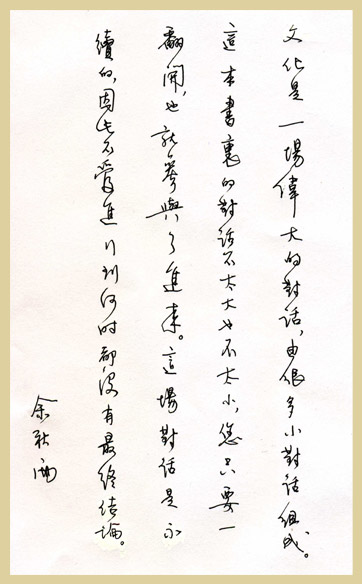 文化是一場偉大的對話，由很多小對話組成。
這本書裏的對話不太大也不太小，您只要一
翻開，也就參與了進來。這場對話是永
續的，因此不管進行到何時都沒有最終結論。
余秋雨